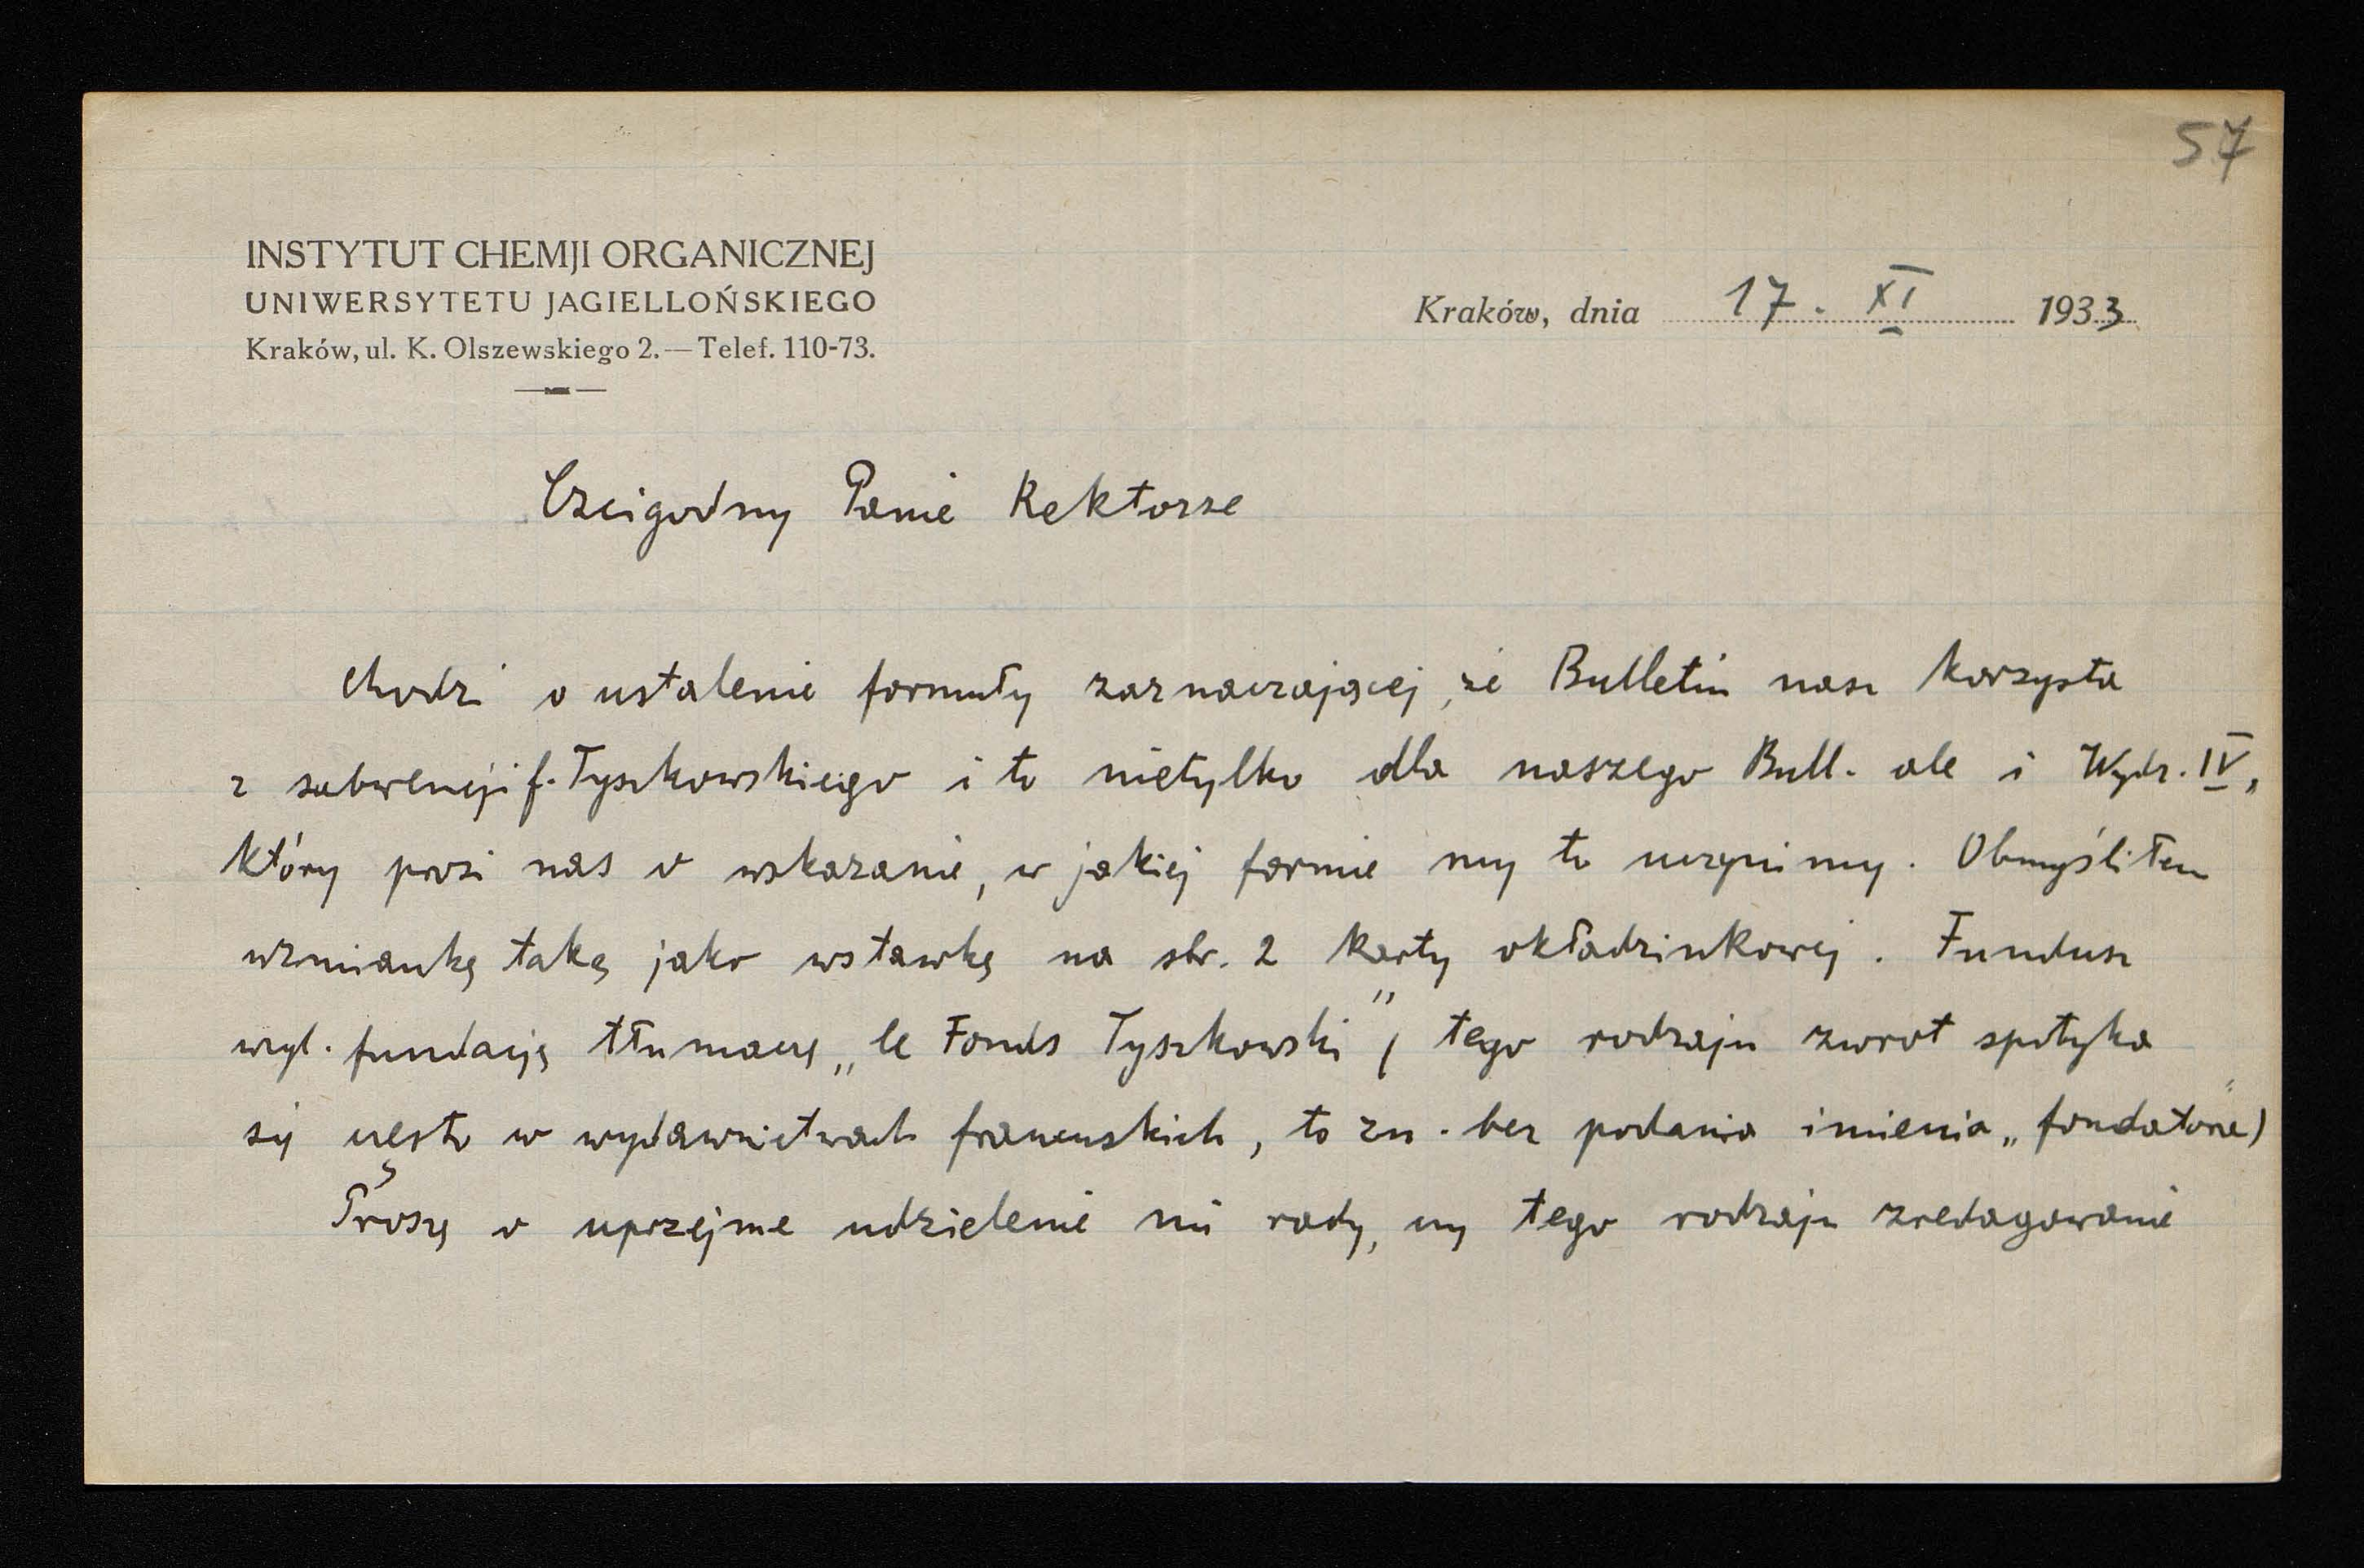 57
INSTYTUT CHEMJI ORGANICZNEJ
UNIWERSYTETU JAGIELLOŃSKIEGO
Kraków, ul. K. Olszewskiego 2. — Telef. 110-73.
Kraków, dnia 17. XI 1933
Czcigodny Panie Rektorze
Chodzi o ustalenie formuły zaznaczającej, że Bulletin nasz korzysta
z subwencji f. Tyszkowskiego i to nietylko dla naszego Bull. ale i Wydz. IV,
który prosi nas o wskazanie, w jakiej formie my to uczynimy. Obmyśliłem
wzmiankę taką jako wstawkę na str. 2 karty okładzinkowej. Fundusz
wzgl. fundację tłumaczę „le Fonds Tyszkowski" (tego rodzaju zwrot spotyka
się często w wydawnictwach francuskich, to zn. bez podania imienia „fondatora")
Proszę o uprzejme udzielenie mi rady, czy tego rodzaju zredagowanie